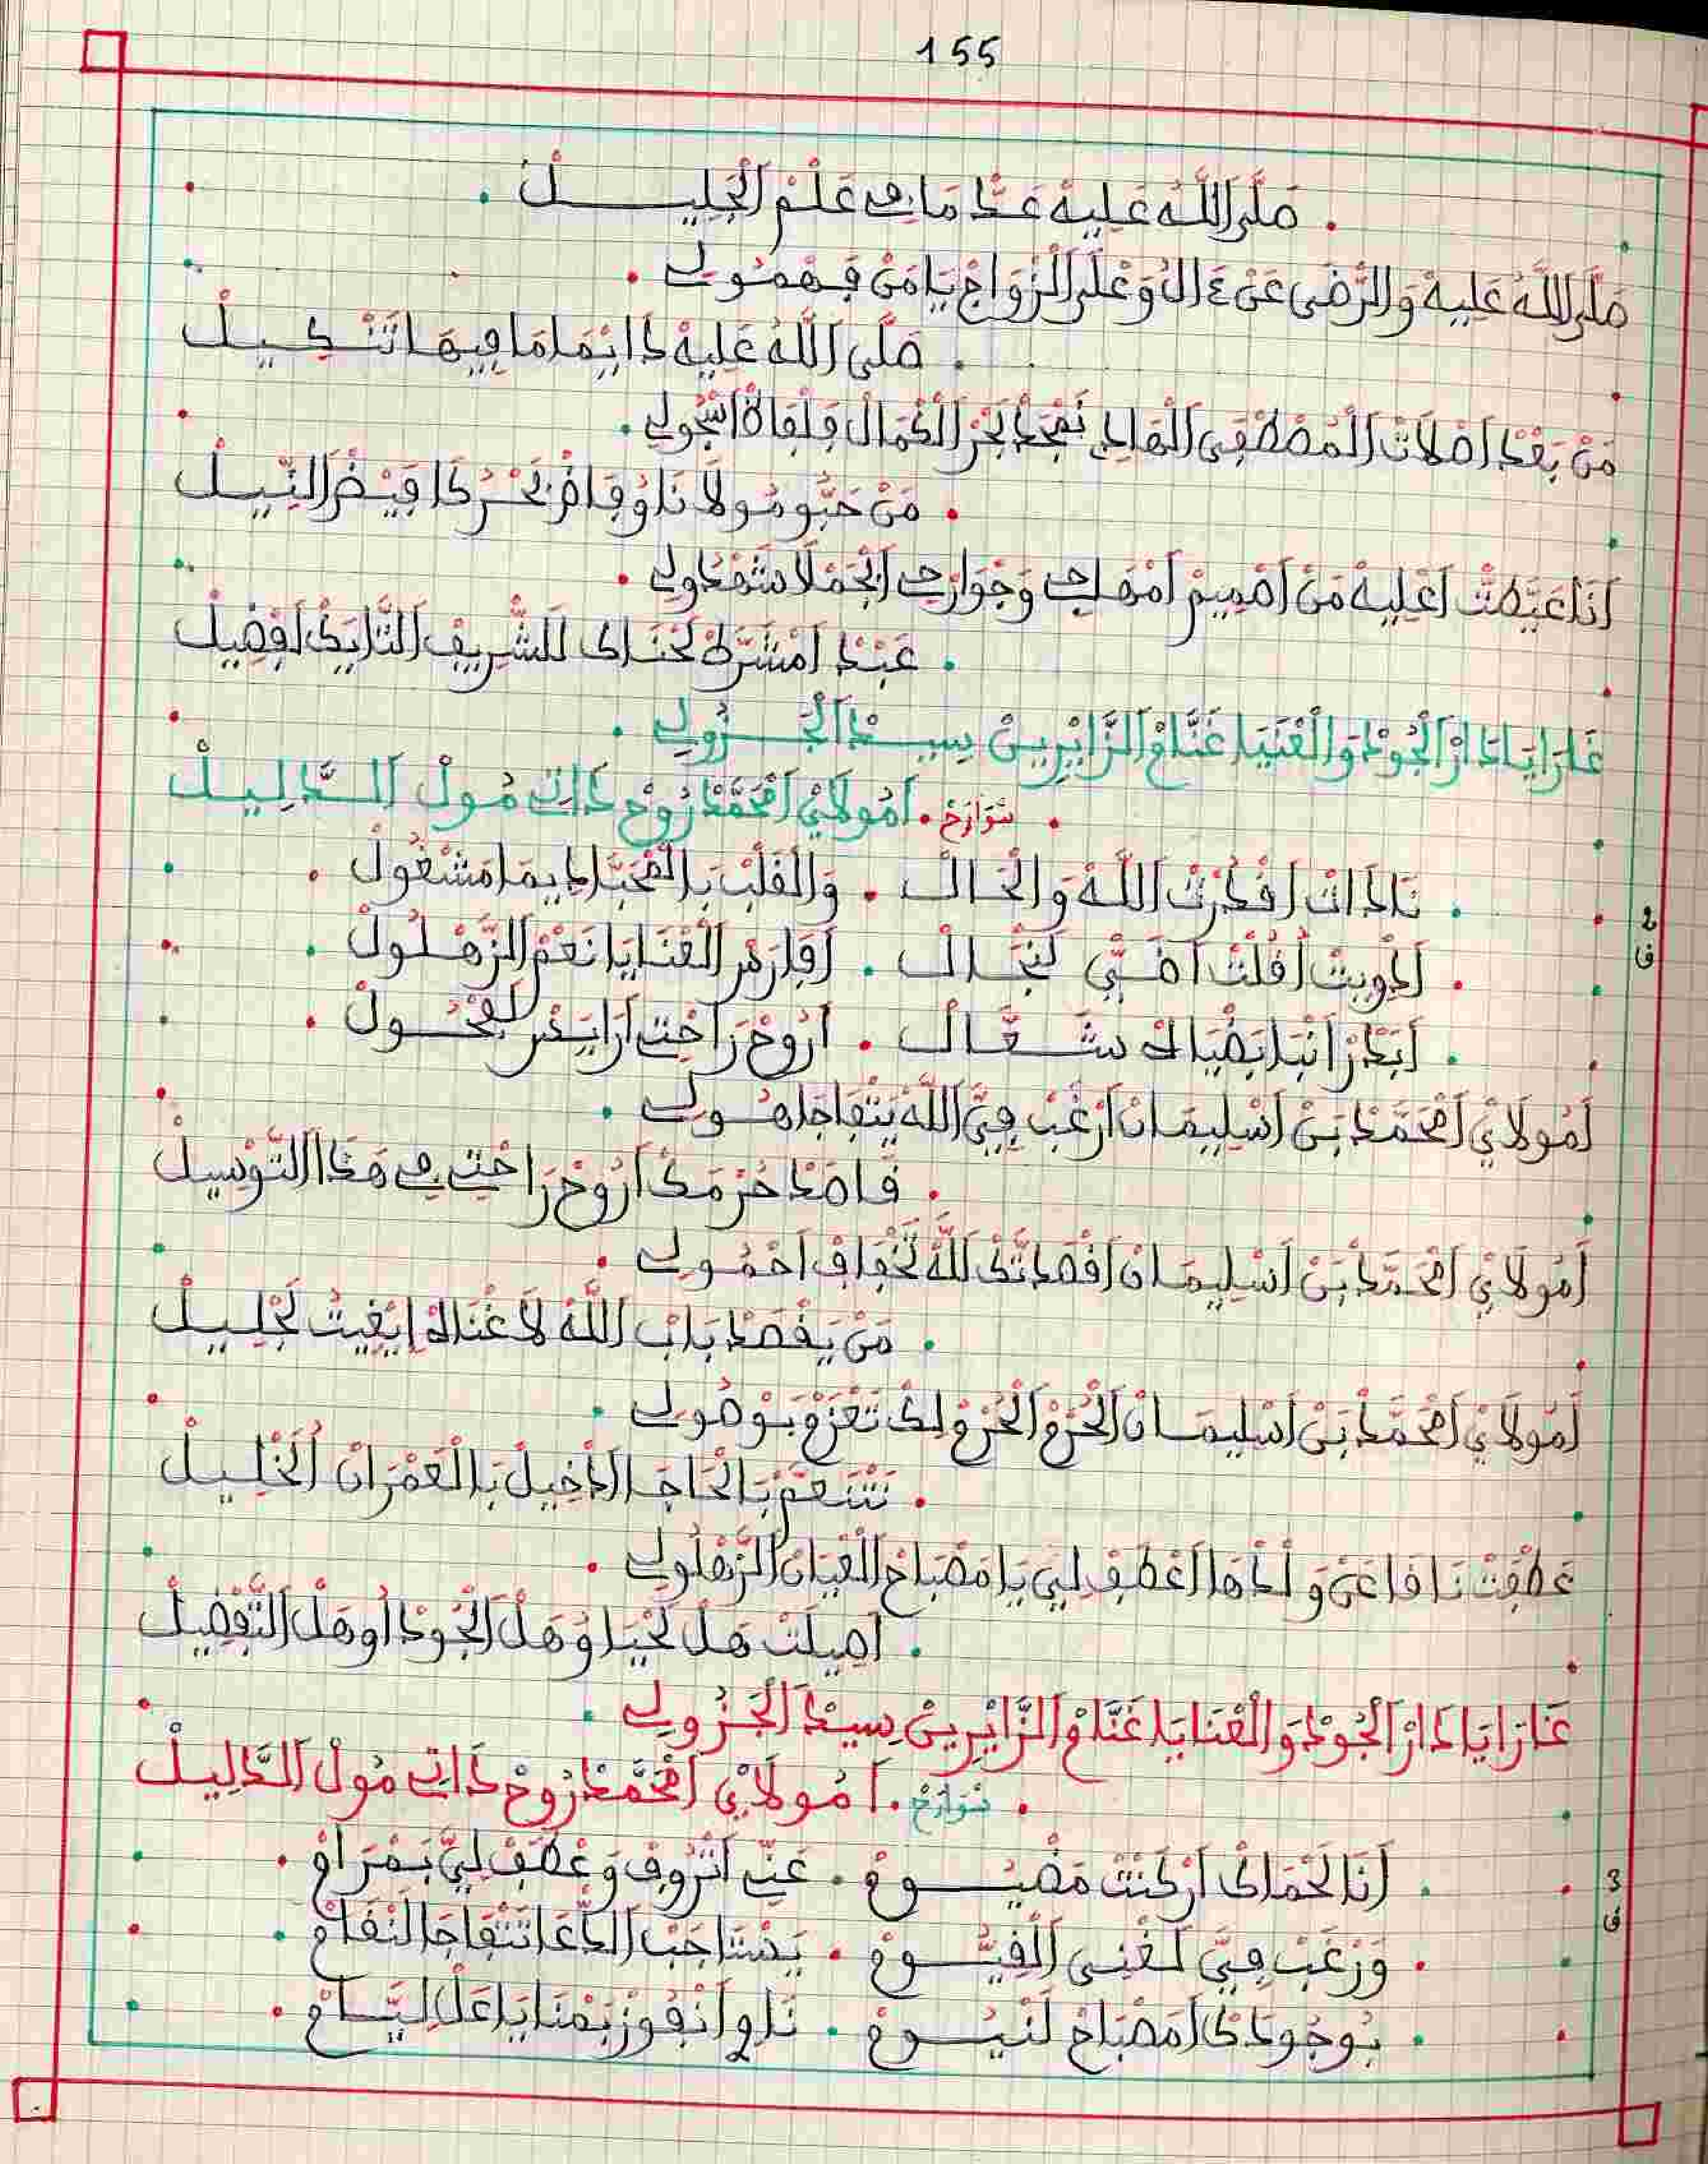 155
صَلَّى اللَّهُ عَلِيهْ عَدّ مَا فِي عَلْمْ الْجَلِيـــــلْ
صَلَّى اللَّهُ عَلِيهْ وَالرّْضَى عَنْ ءَالُ وَعْلَى الْزْوَاجْ يَا مَنْ فَهْمُولِي
صَلَّى اللَّهُ عَلِيهْ دَايْمَا مَا فِيهَا تَنْكِيلْ
مَنْ بَعْدْ اصْلَاتْ الْمُصْطَفَى الْهَادِي نَمْجَدْ بَحْرْ الْكْمَالْ
مَنْ حَبُّو مُولَانَا وُفَاضْ بَحْرُ كَا فَيْضْ النِّيلْ
أَنَا عَيَّطْتْ اعْلِيهْ مَنْ اصْمِيمْ امْهَاجِي وَجْوَارْحِي الْجَمْلَا
عَبْدْ امْشَرَّطْ لَحْنَاكْ للشّْرِيفْ التَّايَكْ افْضِيلْ
غَارَا يَا دَارْ الْجُودْ وَالْغْنَايَا غَنَّامْ الزَّايْرِينْ سِيدْ الْجَـــزُولِي
تَوَارَخْ أَمُولَايْ امْحَمَّدْ رُوحْ دَاتِي مُولْ الدَّلِيلْ
2
ف
نَادَاتْ افْكَرْتْ اللَّهْ وَالْحَالْ وَالْقَلْبْ بَالْمْحَبَّا دِيمَا مَشْغُولْ
ادْوِيتْ اقُلْتْ اضَيّ لَنْجَـــالْ افَارَسْ الْغْنَايَا نَعْمْ الزَّهْلُولْ
ابَدْرْ انْبَا بَضْيَاهْ شَـــعَّـــالْ ارُوحْ رَاحْتِي ارَايَسْ لَفْحُـــولْ
أَمُولَايْ امْحَمَّدْ بَنْ اسْلِيمَانْ ارْغَبْ فِيَّ اللَّهْ يَتْفَاجَا هُـــولِي
قَاصَدْ حُرْمَكْ ارُوحْ رَاحْتِي فِي هَدَا التَّوْسِيلْ
أَمُولَايْ امْحَمَّدْ بَنْ اسْلِيمَانْ اقْصَدْتَكْ لَلَّهْ تَخْفَافْ احْمُـــولِي
مَنْ يَقْصَدْ بَابْ اللَّهْ لَا غْنَاهْ ايْغِيثُ لَجْلِيلْ
أَمُولَايْ امْحَمَّدْ بَنْ اسْلِيمَانْ الْحُرْمْ الْحُرْمْ لِكْ تَعْزَمْ بَوْصُولِي
تَتْنَعَّمْ بَالْحَاجَا ادْخِيلْ بَالْعَمْرَانْ الْخْلِيلْ
عَطْفَتْ نَاقَا عَنْ وَلْدْهَا اعْطَفْ لِيَ يَا مَصْبَاحْ الْعْيَانْ الزَّهْلُولِي
اصِيلَتْ هَلْ لَحْيَا وُهَلْ الْجُودْ اُوهَلْ التَّفْضِيلْ
غَارَا يَا دَارْ الْجُودْ وَالْغْنَايَا غَنَّامْ الزَّايْرِينْ سِيدْ الْجَـــزُولِي
تَوَارَخْ أَمُولَايْ امْحَمَّدْ رُوحْ دَاتِي مُولْ الدَّلِيلْ
3
ف
أَنَا لَحْمَاكْ ارْكَنْتْ مَضْيُـــومْ عَنِّي انْرُوفْ وَعْطَفْ لِيَّ بَمْرَامْ
وَرْغَبْ فِيَّ لَغْنِي الْقِيُّـــومْ يَسْتَاجَبْ الدّْعَا تَتْفَاجَا لَنْقَامْ
بُوجُودَكْ امَصْبَاحْ لَنْيُـــومْ نَدْوِي انْفُوزْ بَمْنَايَا عَلْ لِيَّـــامْ